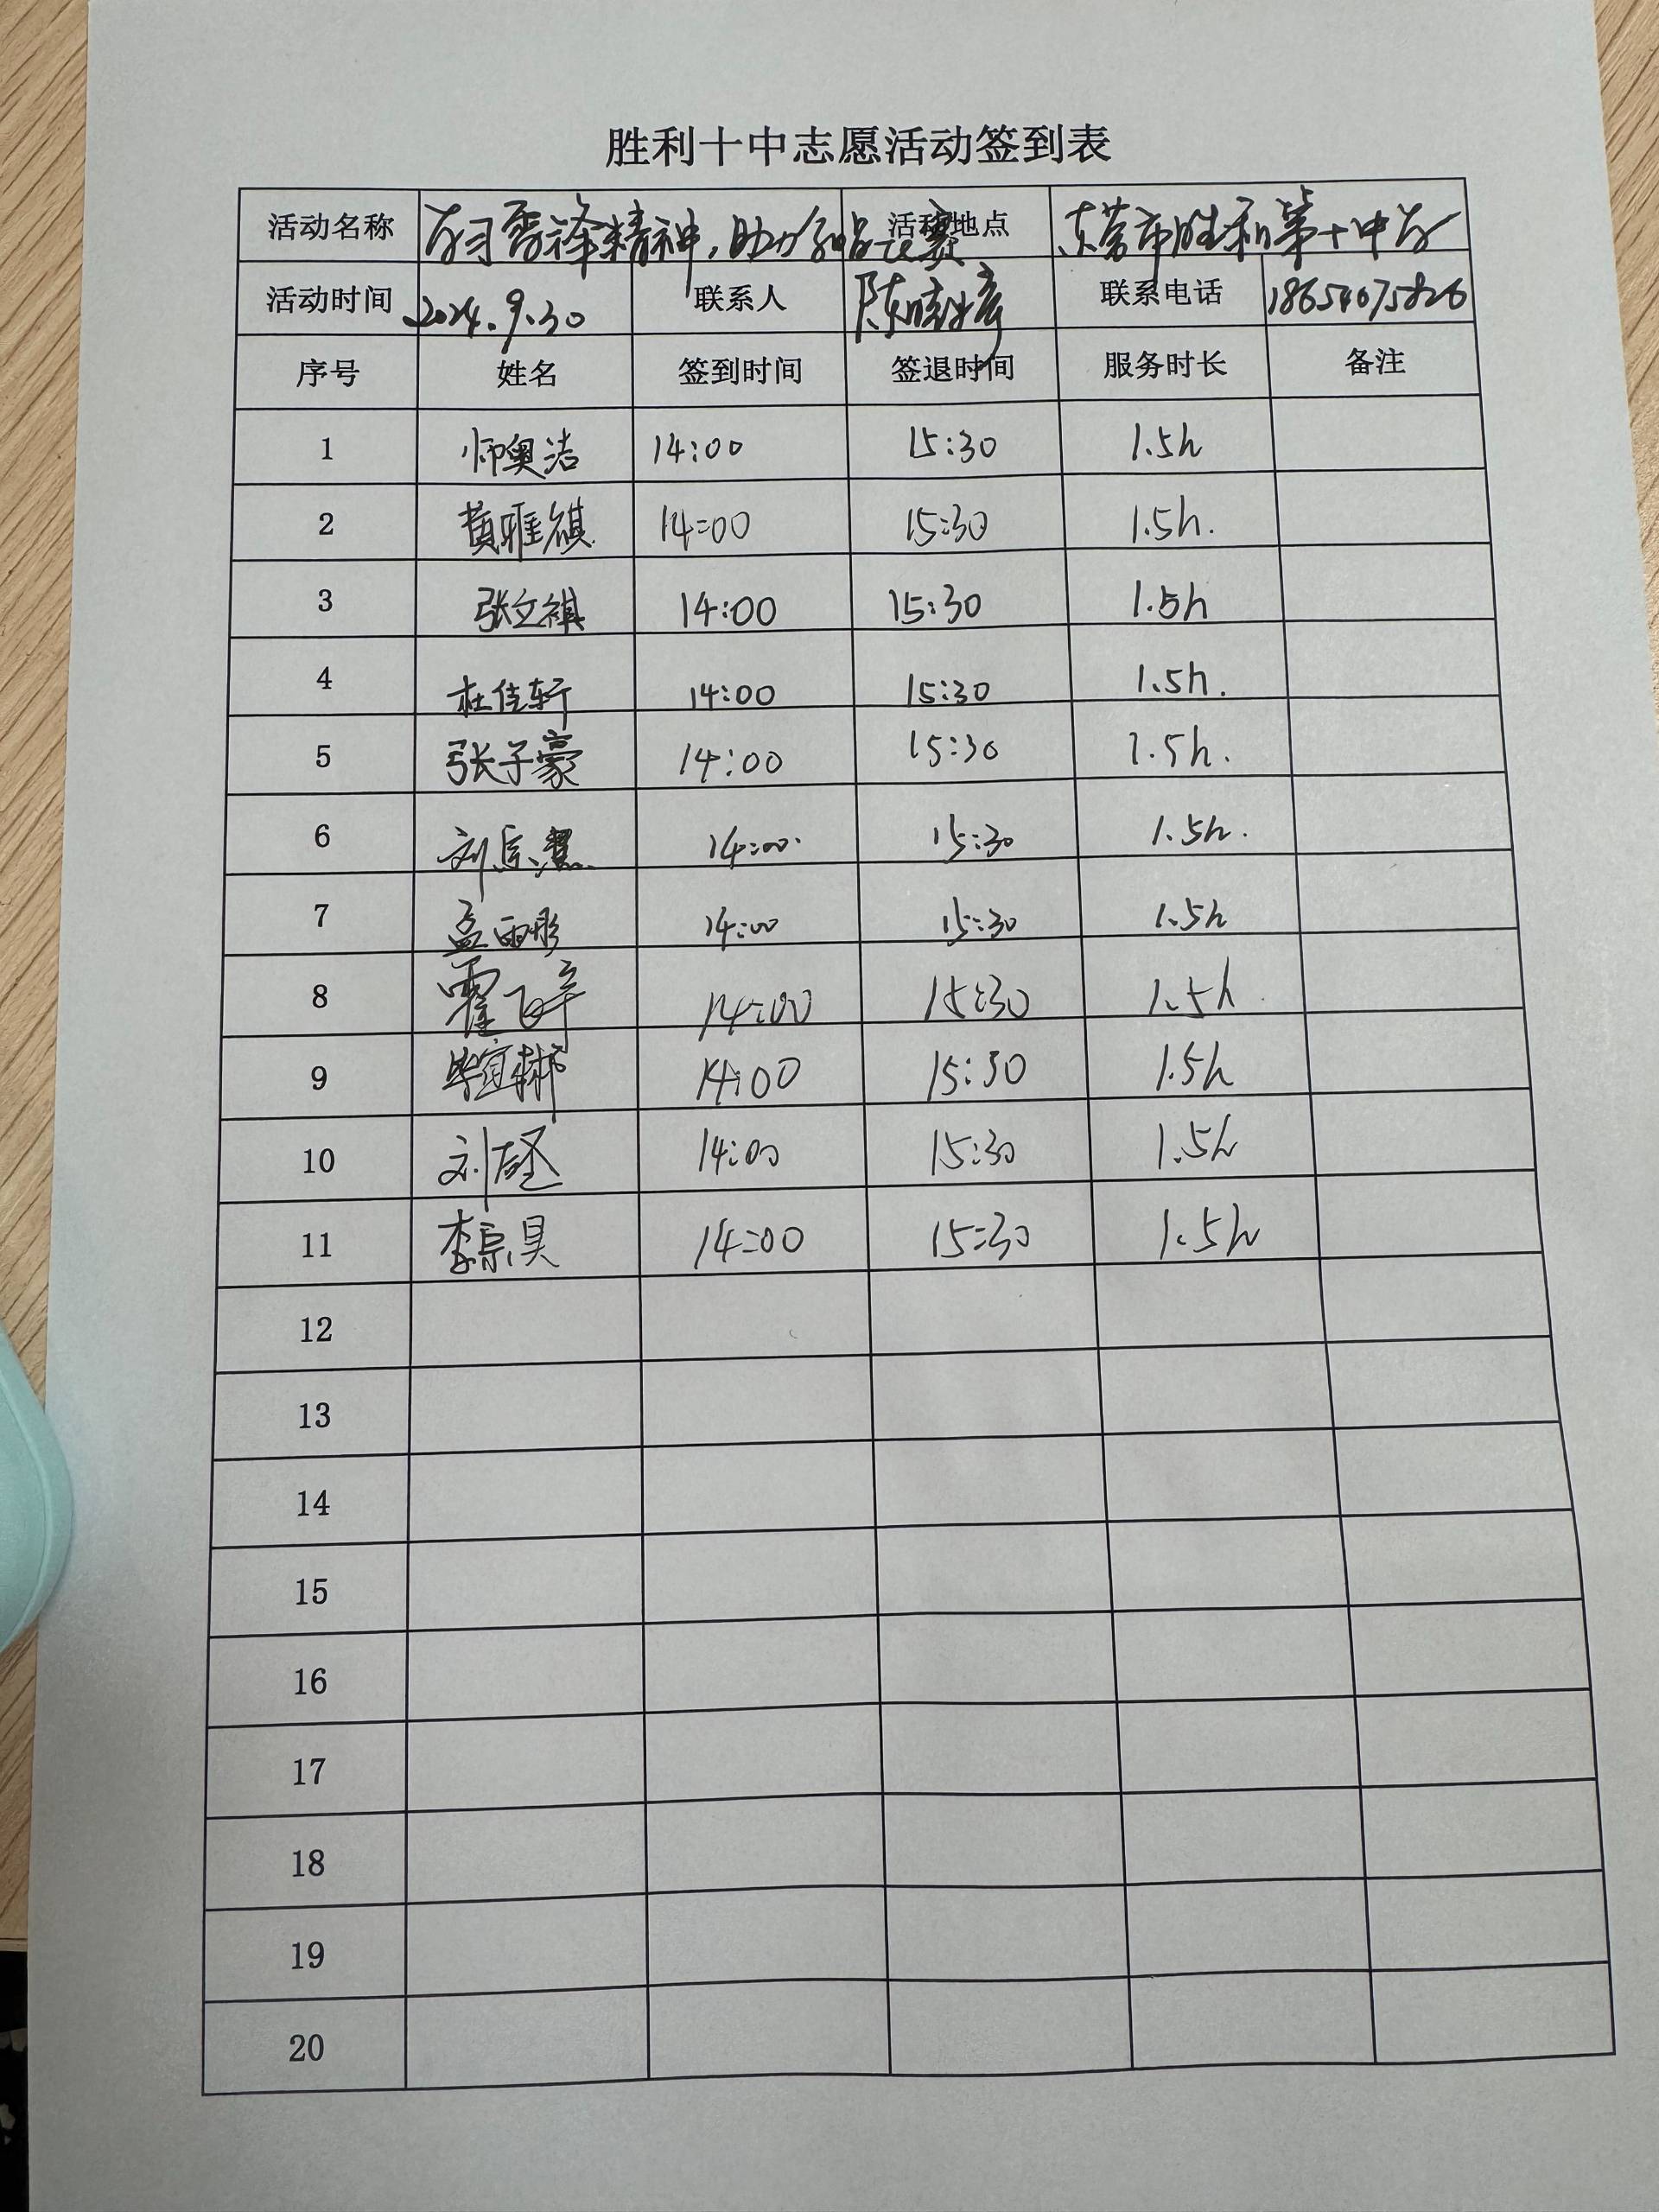 胜利十中志愿活动签到表
活动名称 学习雷锋精神，助力 活动地点 东营市胜利第十中学
活动时间 2024.9.30 联系人 陈 联系电话 18654675826
序号 姓名 签到时间 签退时间 服务时长 备注
1 师奥洁 14:00 15:30 1.5h
2 黄雅祺 14:00 15:30 1.5h.
3 张文祺 14:00 15:30 1.5h
4 杜佳轩 14:00 15:30 1.5h.
5 张子豪 14:00 15:30 1.5h.
6 刘 14:00 15:30 1.5h.
7 孟雨彤 14:00 15:30 1.5h
8 霍飞宇 14:00 15:30 1.5h
9 毕宜彬 14:00 15:30 1.5h
10 刘 14:00 15:30 1.5h
11 李宗昊 14:00 15:30 1.5h
12
13
14
15
16
17
18
19
20